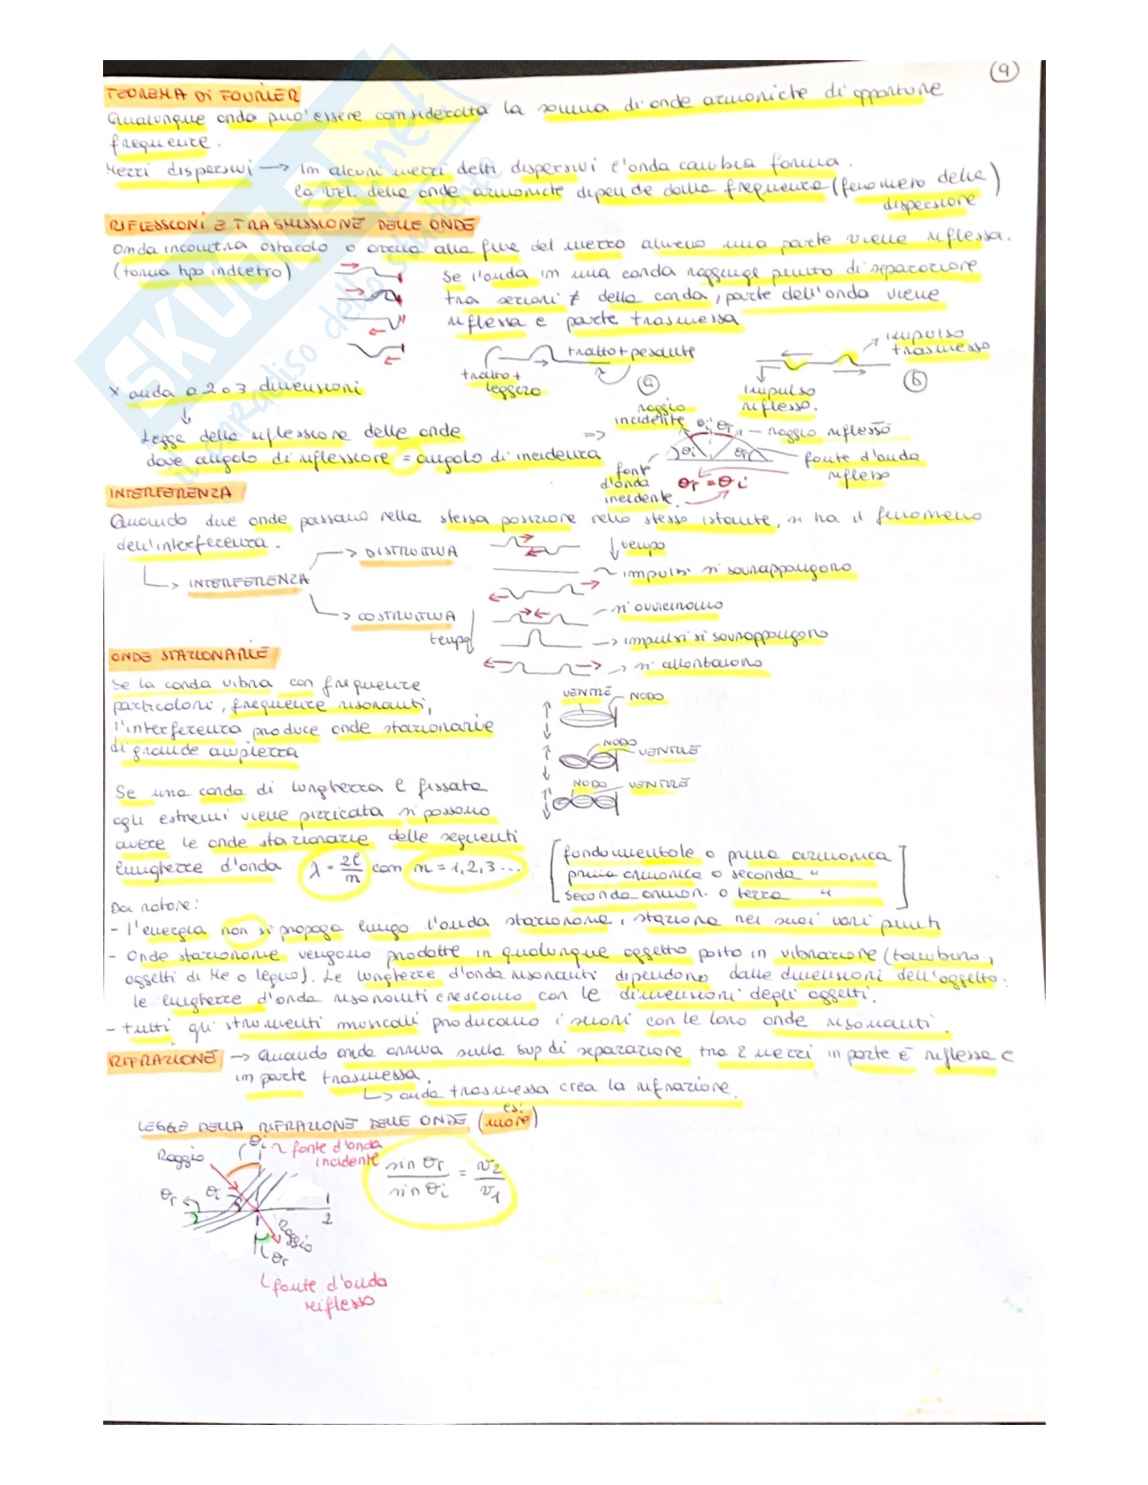 9
TEOREMA DI FOURIER
Qualunque onda puo' essere considerata la somma di onde armoniche di opportune
frequenze.
Mezzi dispersivi → In alcuni mezzi detti dispersivi l'onda cambia forma.
la vel. delle onde armoniche dipende dalla frequenza (fenomeno della
dispersione)
RIFLESSIONI E TRASMISSIONE DELLE ONDE
Onda incontra ostacolo o arriva alla fine del mezzo almeno una parte viene riflessa.
(torna tipo indietro)
Se l'onda in una corda raggiunge punto di separazione
tra sezioni ≠ della corda, parte dell'onda viene
riflessa e parte trasmessa
tratto + pesante
tratto +
leggero
a
impulso
trasmesso
impulso
riflesso.
b
x onda a 2 o 3 dimensioni
↓
Legge della riflessione delle onde =>
dove angolo di riflessione = angolo di incidenza
raggio
incidente
θi θr
raggio riflesso
θi θr
fonte
d'onda
incidente
θr = θi
fonte d'onda
riflesso
INTERFERENZA
Quando due onde passano nella stessa posizione nello stesso istante, si ha il fenomeno
dell'interferenza.
→ INTERFERENZA
→ DISTRUTTIVA
tempo
impulsi si sovrappongono
→ COSTRUTTIVA
tempo
si avvicinano
→ impulsi si sovrappongono
→ si allontanano
ONDE STAZIONARIE
Se la corda vibra con frequenze
particolari, frequenze risonanti,
l'interferenza produce onde stazionarie
di grande ampiezza
VENTRE NODO
NODO VENTRE
NODO VENTRE
Se una corda di lunghezza l fissata
agli estremi viene pizzicata si possono
avere le onde stazionarie delle seguenti
lunghezze d'onda λ = 2l/m con m = 1, 2, 3 ...
[fondamentale o prima armonica
prima armonica o seconda "
seconda armon. o terza "]
Da notare:
- l'energia non si propaga lungo l'onda stazionaria, staziona nei suoi vari punti
- Onde stazionarie vengono prodotte in qualunque oggetto posto in vibrazione (tamburo,
oggetti di Me o legno). Le lunghezze d'onda risonanti dipendono dalle dimensioni dell'oggetto.
le lunghezze d'onda risonanti crescono con le dimensioni degli oggetti.
- tutti gli strumenti musicali producono i suoni con le loro onde risonanti.
RIFRAZIONE → Quando onda arriva sulla sup di separazione tra 2 mezzi in parte è riflessa e
in parte trasmessa.
↳ onda trasmessa crea la rifrazione.
LEGGE DELLA RIFRAZIONE DELLE ONDE (es: suore)
Raggio
θi
fonte d'onda
incidente
sin θr / sin θi = v2 / v1
θr
θi
1
2
Raggio
θr
fonte d'onda
riflesso
SKUOLA.net
il paradiso dello studente